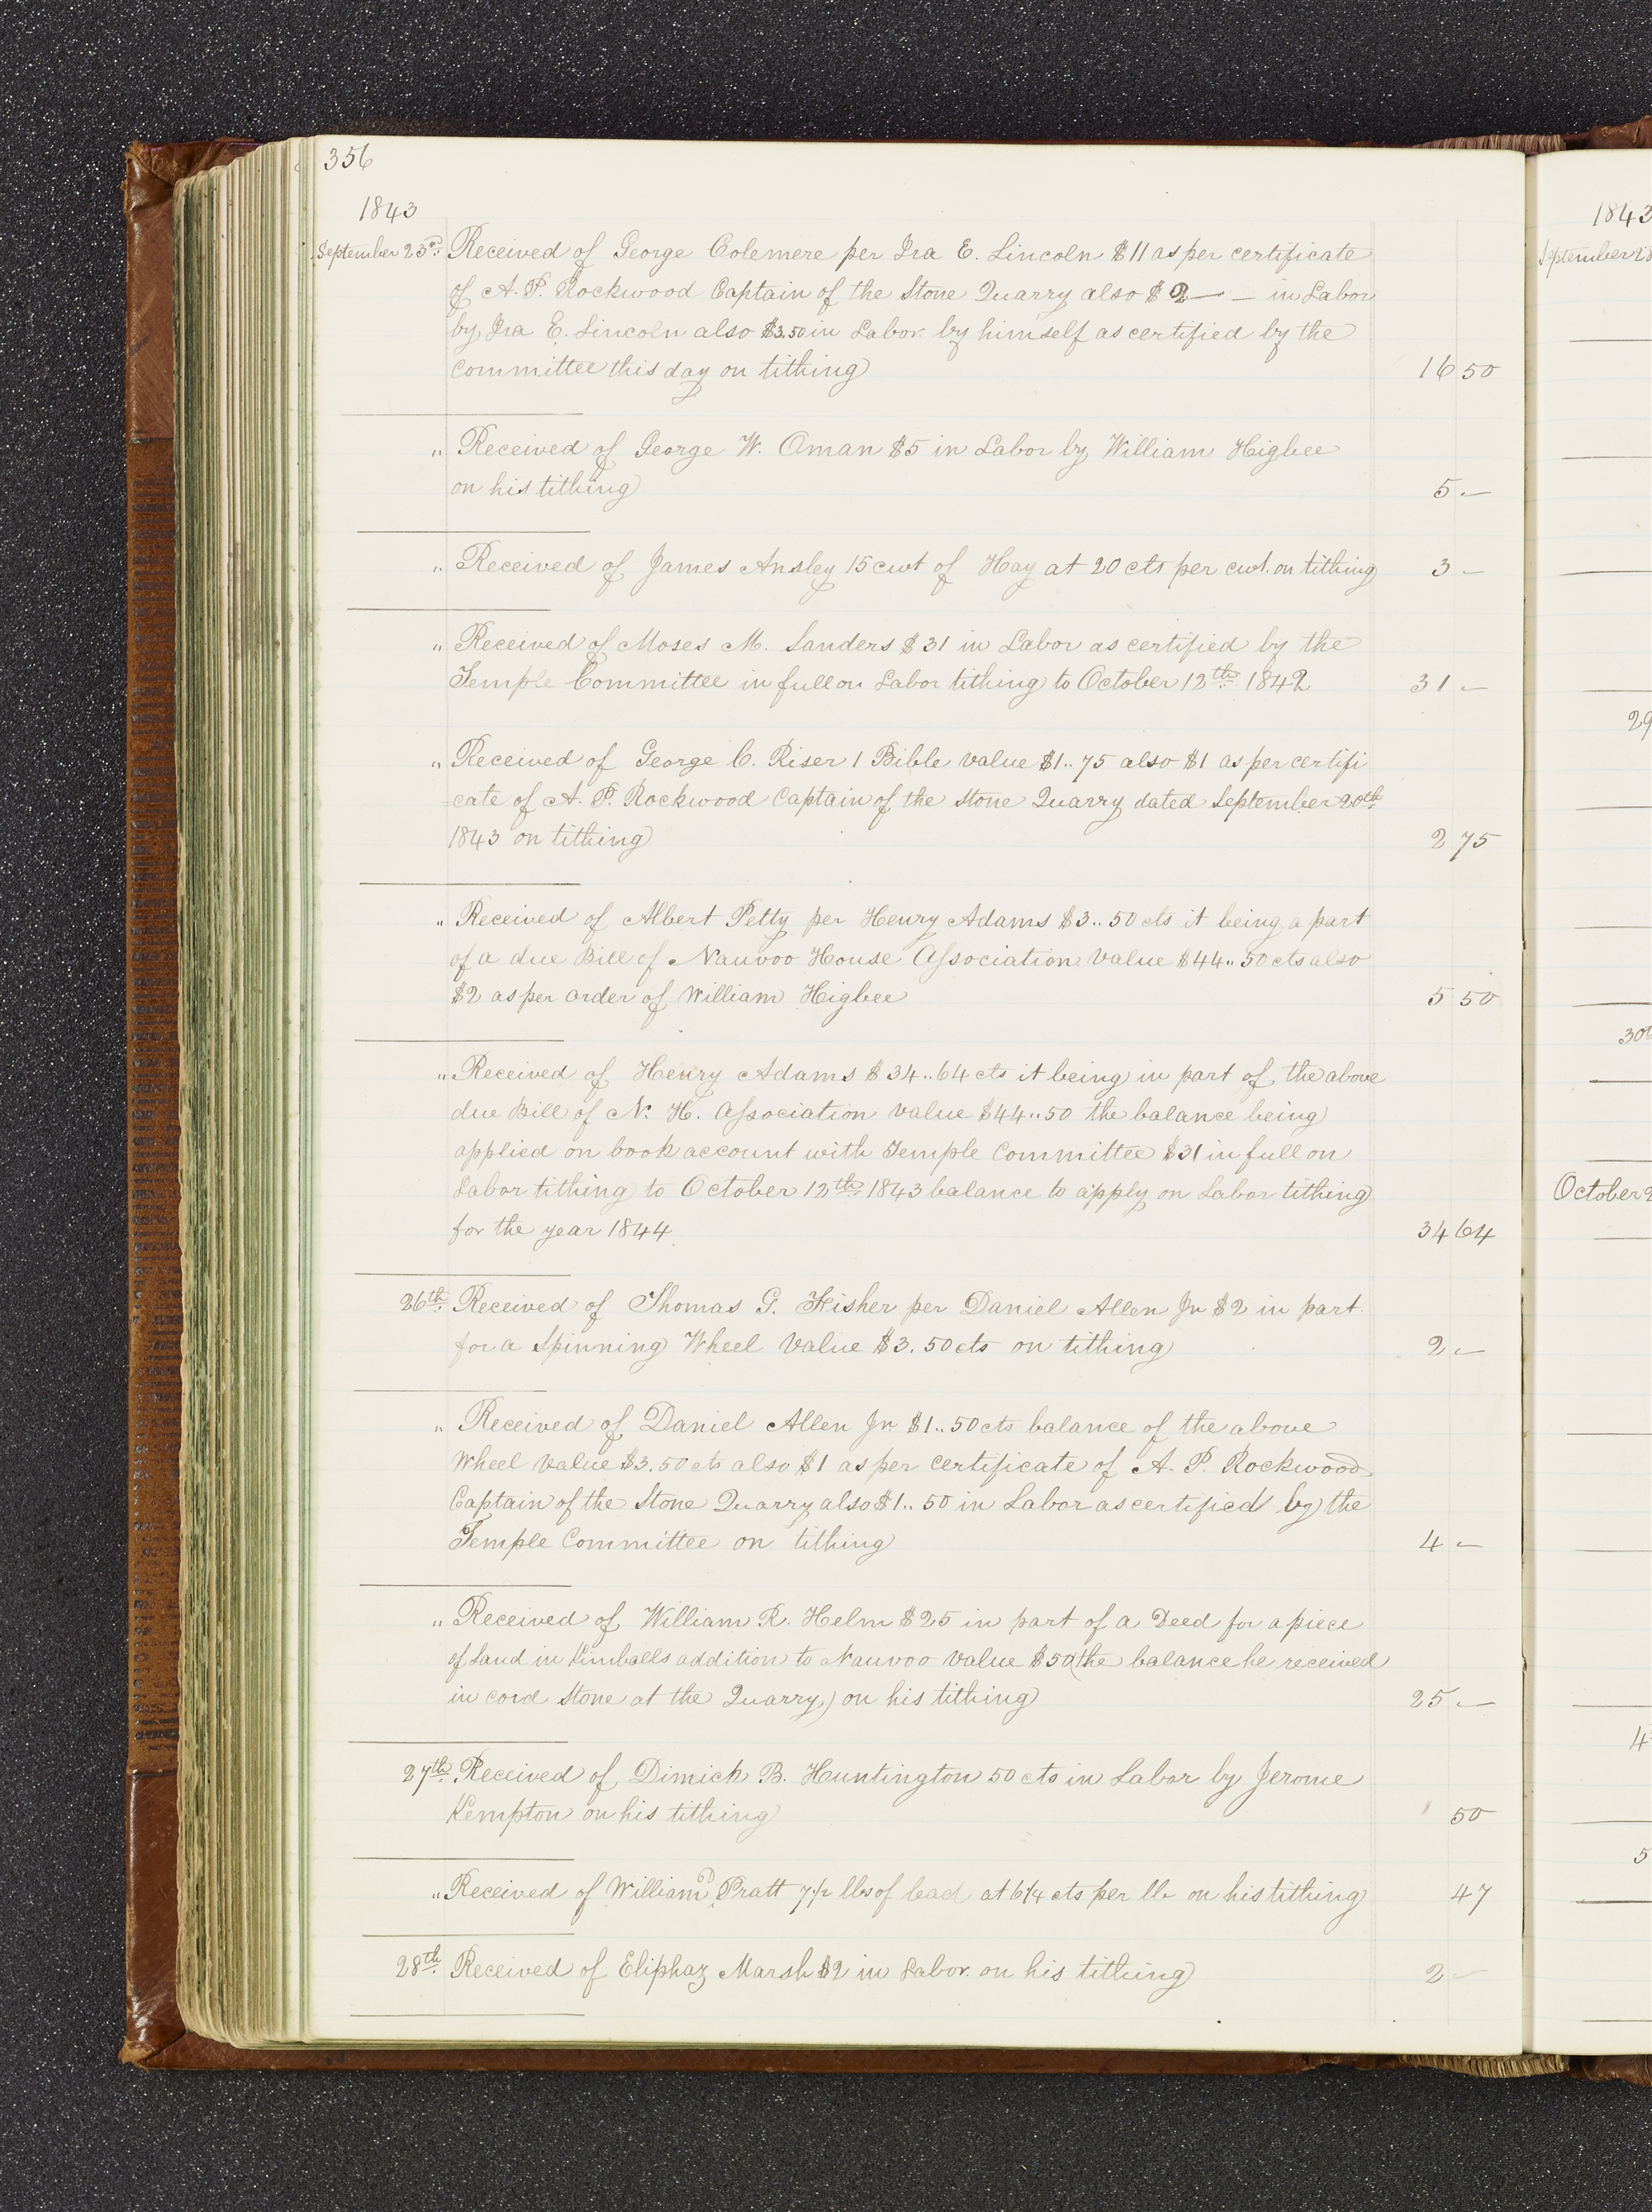 356
1843
September 23rd Received of George Colemere per Ira E. Lincoln $11 as per certificate
of A. P. Rockwood Captain of the Stone Quarry also $2 — — in Labor
by Ira E. Lincoln also $3.50 in Labor by himself as certified by the
Committee this day on tithing 16 50
" Received of George W. Oman $5 in Labor by William Higbee
on his tithing 5 —
" Received of James Ansley 15 cwt of Hay at 20 cts per cwt. on tithing 3 —
" Received of Moses M. Sanders $31 in Labor as certified by the
Temple Committee in full on Labor tithing to October 12th 1842 31 —
" Received of George C. Riser 1 Bible value $1..75 also $1 as per certifi
=cate of A. P. Rockwood Captain of the Stone Quarry dated September 20th
1843 on tithing 2 75
" Received of Albert Petty per Henry Adams $3..50 cts it being a part
of a due Bill of Nauvoo House Association Value $44..50 cts also
$2 as per order of William Higbee 5 50
" Received of Henry Adams $34..64 cts it being in part of the above
due Bill of N. H. Association value $44..50 the balance being
applied on book account with Temple Committee $31 in full on
Labor tithing to October 12th 1843 balance to apply on Labor tithing
for the year 1844 34 64
26th Received of Thomas G. Fisher per Daniel Allen Jr $2 in part
for a Spinning Wheel Value $3.50 cts on tithing 2 —
" Received of Daniel Allen Jr. $1..50 cts balance of the above
Wheel Value $3.50 cts also $1 as per certificate of A. P. Rockwood
Captain of the Stone Quarry also $1..50 in Labor as certified by the
Temple Committee on tithing 4 —
" Received of William R. Helm $25 in part of a Deed for a piece
of Land in Kimballs addition to Nauvoo value $50 (the balance he received
in cord Stone at the Quarry) on his tithing 25 —
27th Received of Dimick B. Huntington 50 cts in Labor by Jerome
Kempton on his tithing 50
" Received of William D Pratt 7 1/2 lbs of lead at 6 1/4 cts per lb on his tithing 47
28th Received of Eliphaz Marsh $2 in Labor on his tithing 2 —
1843
September 28
29
30th
October 2
4
5